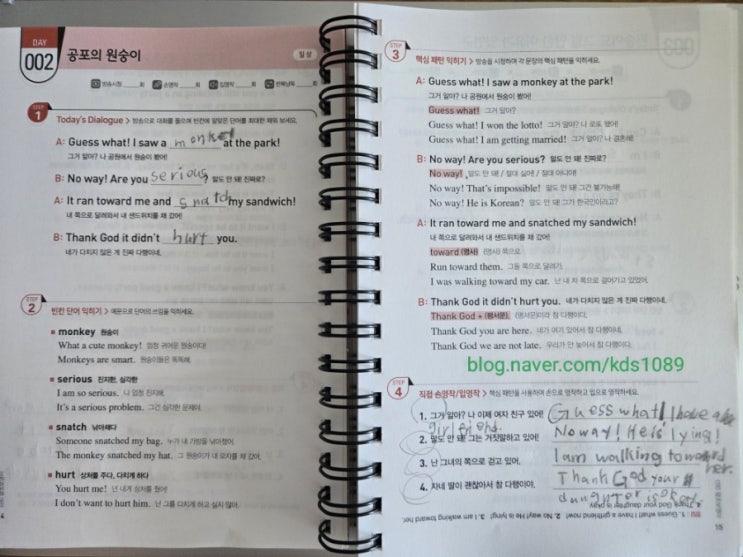 DAY
002
공포의 원숭이
일상
방송시청 ___회
손영작 ___회
입영작 ___회
반복낭독 ___회
STEP 1
Today's Dialogue > 방송으로 대화를 들으며 빈칸에 알맞은 단어를 최대한 채워 보세요.
A: Guess what! I saw a monkey at the park!
그거 알아? 나 공원에서 원숭이 봤어!
B: No way! Are you serious? 말도 안 돼! 진짜로?
A: It ran toward me and snatd my sandwich!
내 쪽으로 달려와서 내 샌드위치를 채 갔어!
B: Thank God it didn't hurt you.
네가 다치지 않은 게 진짜 다행이네.
STEP 2
빈칸 단어 익히기 > 예문으로 단어의 쓰임을 익히세요.
monkey 원숭이
What a cute monkey! 엄청 귀여운 원숭이다!
Monkeys are smart. 원숭이들은 똑똑해.
serious 진지한, 심각한
I am so serious. 나 엄청 진지해.
It's a serious problem. 그건 심각한 문제야.
snatch 낚아채다
Someone snatched my bag. 누가 내 가방을 낚아챘어.
The monkey snatched my hat. 그 원숭이가 내 모자를 채 갔어.
hurt 상처를 주다, 다치게 하다
You hurt me! 넌 내게 상처를 줬어!
I don't want to hurt him. 난 그를 다치게 하고 싶지 않아.
STEP 3
핵심 패턴 익히기 > 방송을 시청하며 각 문장의 핵심 패턴을 익히세요.
A: Guess what! I saw a monkey at the park!
그거 알아? 나 공원에서 원숭이 봤어!
Guess what! 그거 알아?
Guess what! I won the lotto! 그거 알아? 나 로또 됐어!
Guess what! I am getting married! 그거 알아? 나 결혼해!
B: No way! Are you serious? 말도 안 돼! 진짜로?
No way! 말도 안 돼! / 절대 싫어! / 절대 아니야!
No way! That's impossible! 말도 안 돼! 그건 불가능해!
No way! He is Korean? 말도 안 돼! 그가 한국인이라고?
A: It ran toward me and snatched my sandwich!
내 쪽으로 달려와서 내 샌드위치를 채 갔어!
toward (명사) (명사) 쪽으로
Run toward them. 그들 쪽으로 달려가.
I was walking toward my car. 난 내 차 쪽으로 걸어가고 있었어.
B: Thank God it didn't hurt you. 네가 다치지 않은 게 진짜 다행이네.
Thank God + (평서문). (평서문)이라 참 다행이다.
Thank God you are here. 네가 여기 있어서 참 다행이다.
Thank God we are not late. 우리가 안 늦어서 참 다행이다.
blog.naver.com/kds1089
STEP 4
직접 손영작/입영작 > 핵심 패턴을 사용하여 손으로 영작하고 입으로 영작하세요.
1. 그거 알아? 나 이제 여자 친구 있어! Guess what! I have a
girlfriend.
2. 말도 안 돼! 그는 거짓말하고 있어! No way! He is lying!
3. 난 그녀의 쪽으로 걷고 있어. I am walking toward
her.
4. 자네 딸이 괜찮아서 참 다행이야. Thank God your
1. Guess what! I have a girlfriend now! 2. No way! He is lying! 3. I am walking toward her.
4. Thank God your daughter is okay.
15